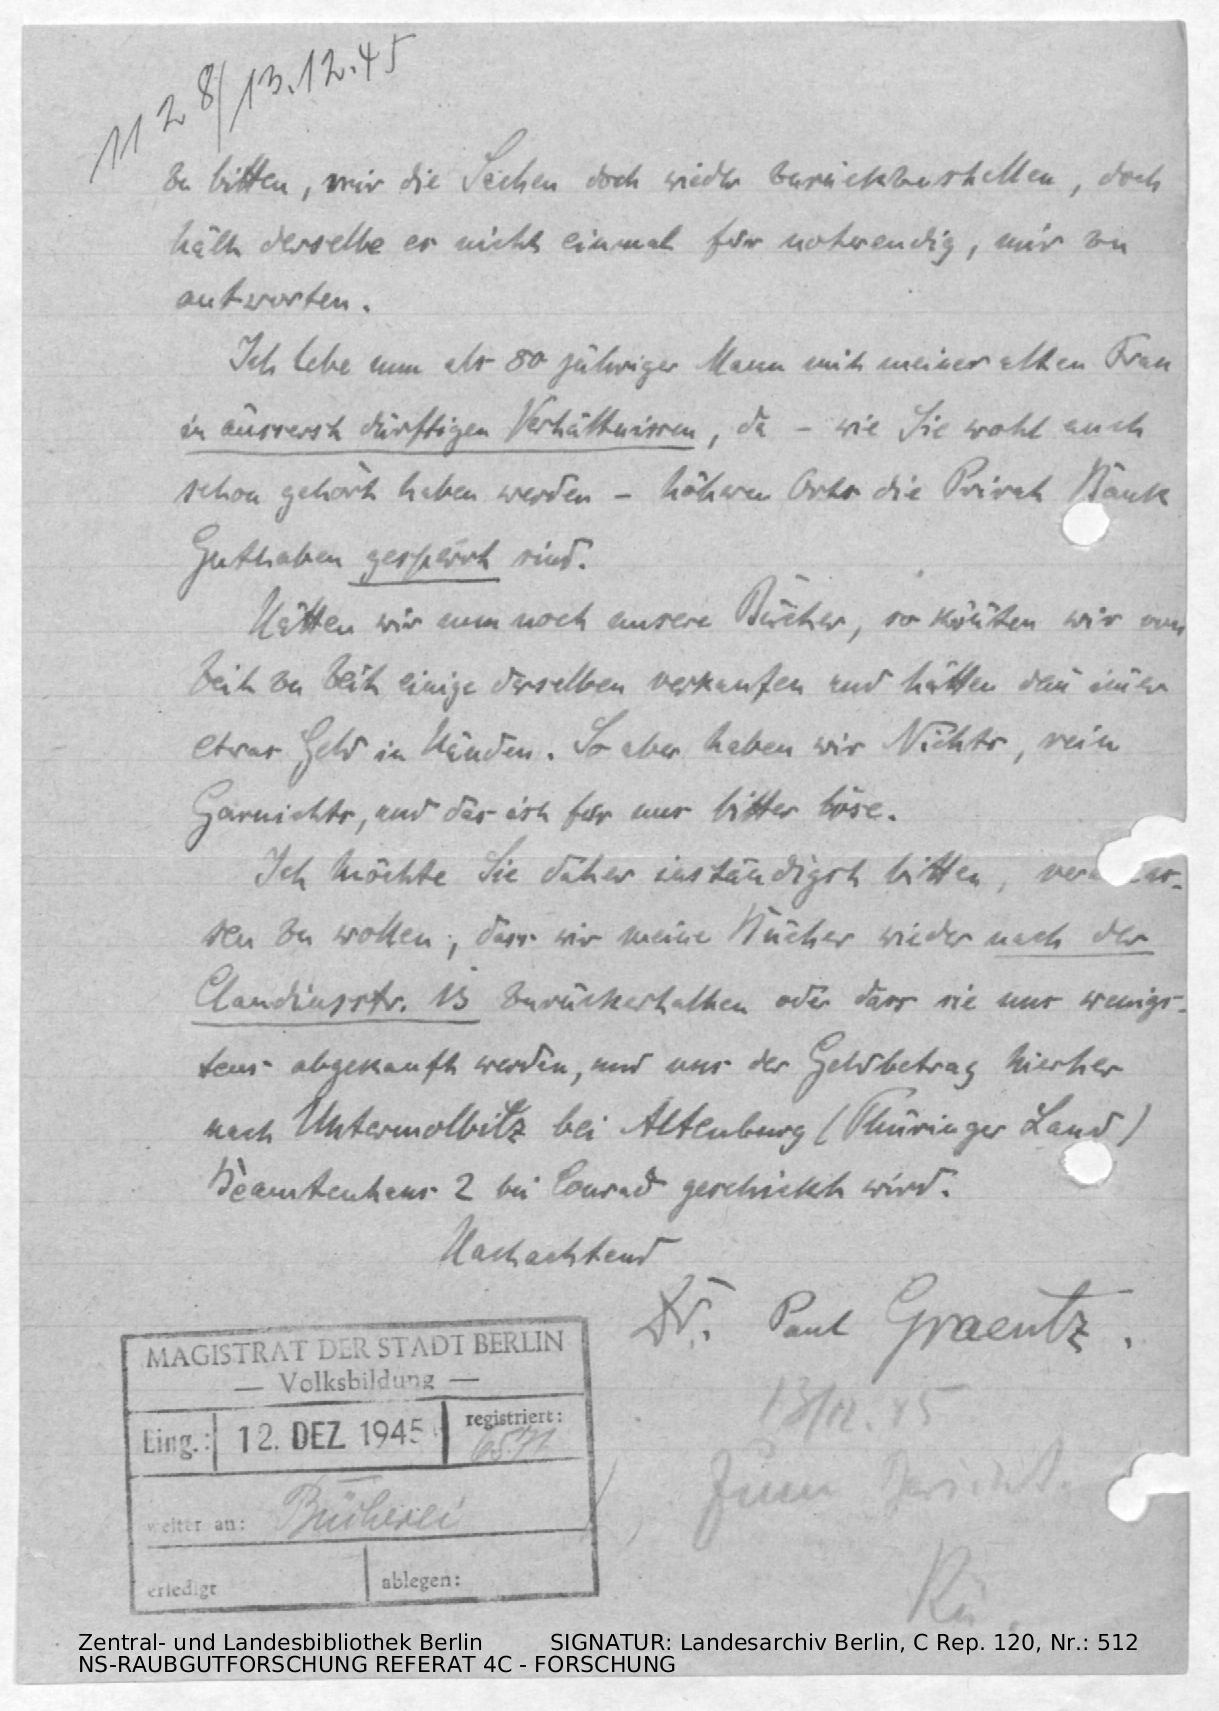 1128/13.12.45
zu bitten, mir die Sachen doch wieder zurückzustellen, doch
hält derselbe es nicht einmal für notwendig, mir zu
antworten.
Ich lebe nun als 80 jähriger Mann mit meiner alten Frau
in äussersst dürftigen Verhältnissen, da - wie Sie wohl auch
schon gehört haben werden - höheren Orts die Privat Bank
Guthaben gesperrt sind.
Hätten wir nun noch unsere Bücher, so könnten wir von
Zeit zu Zeit einige derselben verkaufen und hätten dann immer
etwas Geld in Händen. So aber haben wir Nichts, rein
Garnichts, und das ist für uns bitter böse.
Ich möchte Sie daher inständigst bitten,
sen zu wollen, dass wir meine Bücher wieder nach der
Claudiusstr. 15 zurückerhalten oder dass sie uns wenigs-
tens abgekauft werden, und uns der Geldbetrag hierher
nach Untermolbitz bei Altenburg (Thüringer Land)
Beamtenhaus 2 bei Conrad geschickt wird.
Hochachtend
Dr. Paul Graentz.
MAGISTRAT DER STADT BERLIN
— Volksbildung —
Eing.: 12. DEZ 1945 registriert:
weiter an: Bücherei
erledigt ablegen:
13/12.45
Zum Bericht.
Rü.
Zentral- und Landesbibliothek Berlin SIGNATUR: Landesarchiv Berlin, C Rep. 120, Nr.: 512
NS-RAUBGUTFORSCHUNG REFERAT 4C - FORSCHUNG